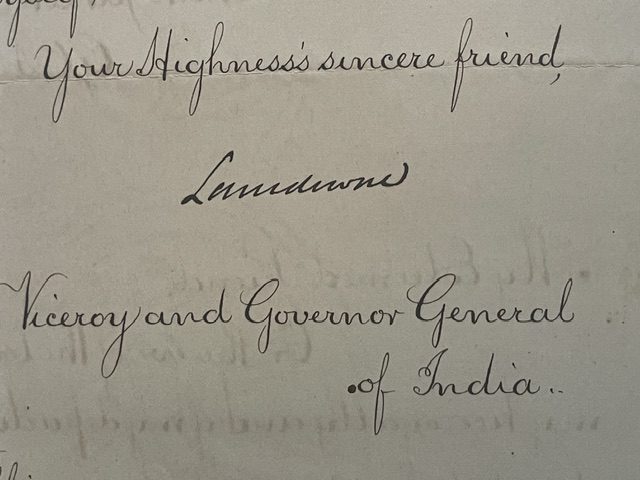 Your Highness's sincere friend,
Lansdowne
Viceroy and Governor General
of India..